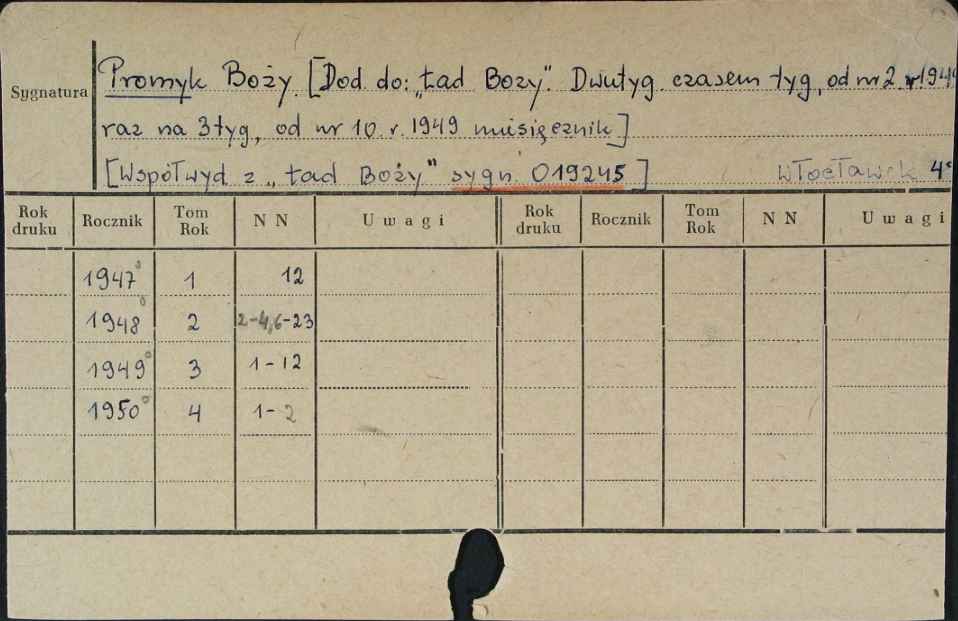 Sygnatura
Promyk Boży. [Dod. do: „Ład Boży". Dwutyg. czasem tyg., od nr 2. r. 1949
raz na 3 tyg., od nr 10. r. 1949 miesięcznik]
[Współwyd z „Ład Boży" sygn. 019245] Włocławek 4°
Rok druku Rocznik Tom Rok N N Uwagi Rok druku Rocznik Tom Rok N N Uwagi
1947° 1 12
1948° 2 2-4,6-23
1949° 3 1-12
1950° 4 1-2